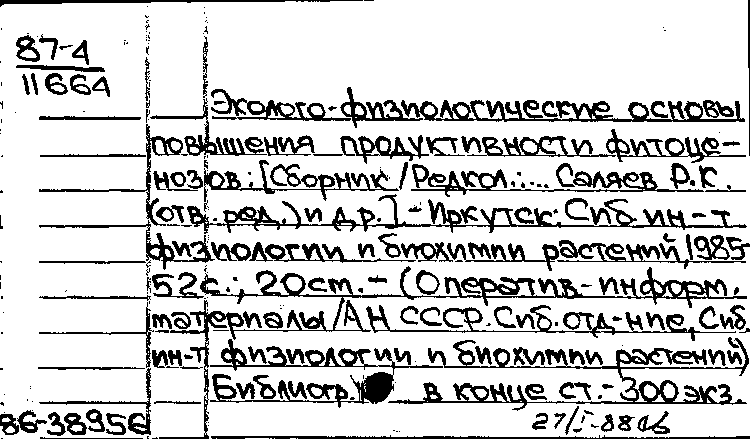 87-4
11664
Эколого-физиологические основы
повышения продуктивности фитоце-
нозов: [Сборник / Редкол.:... Саляев Р.К.
(отв. ред.) и др.] - Иркутск: Сиб. ин-т
физиологии и биохимии растений, 1985
52с.; 20см. - (Оператив.-информ.
материалы / АН СССР. Сиб. отд-ние, Сиб.
ин-т физиологии и биохимии растений)
Библиогр. в конце ст. - 300 экз.
86-38956